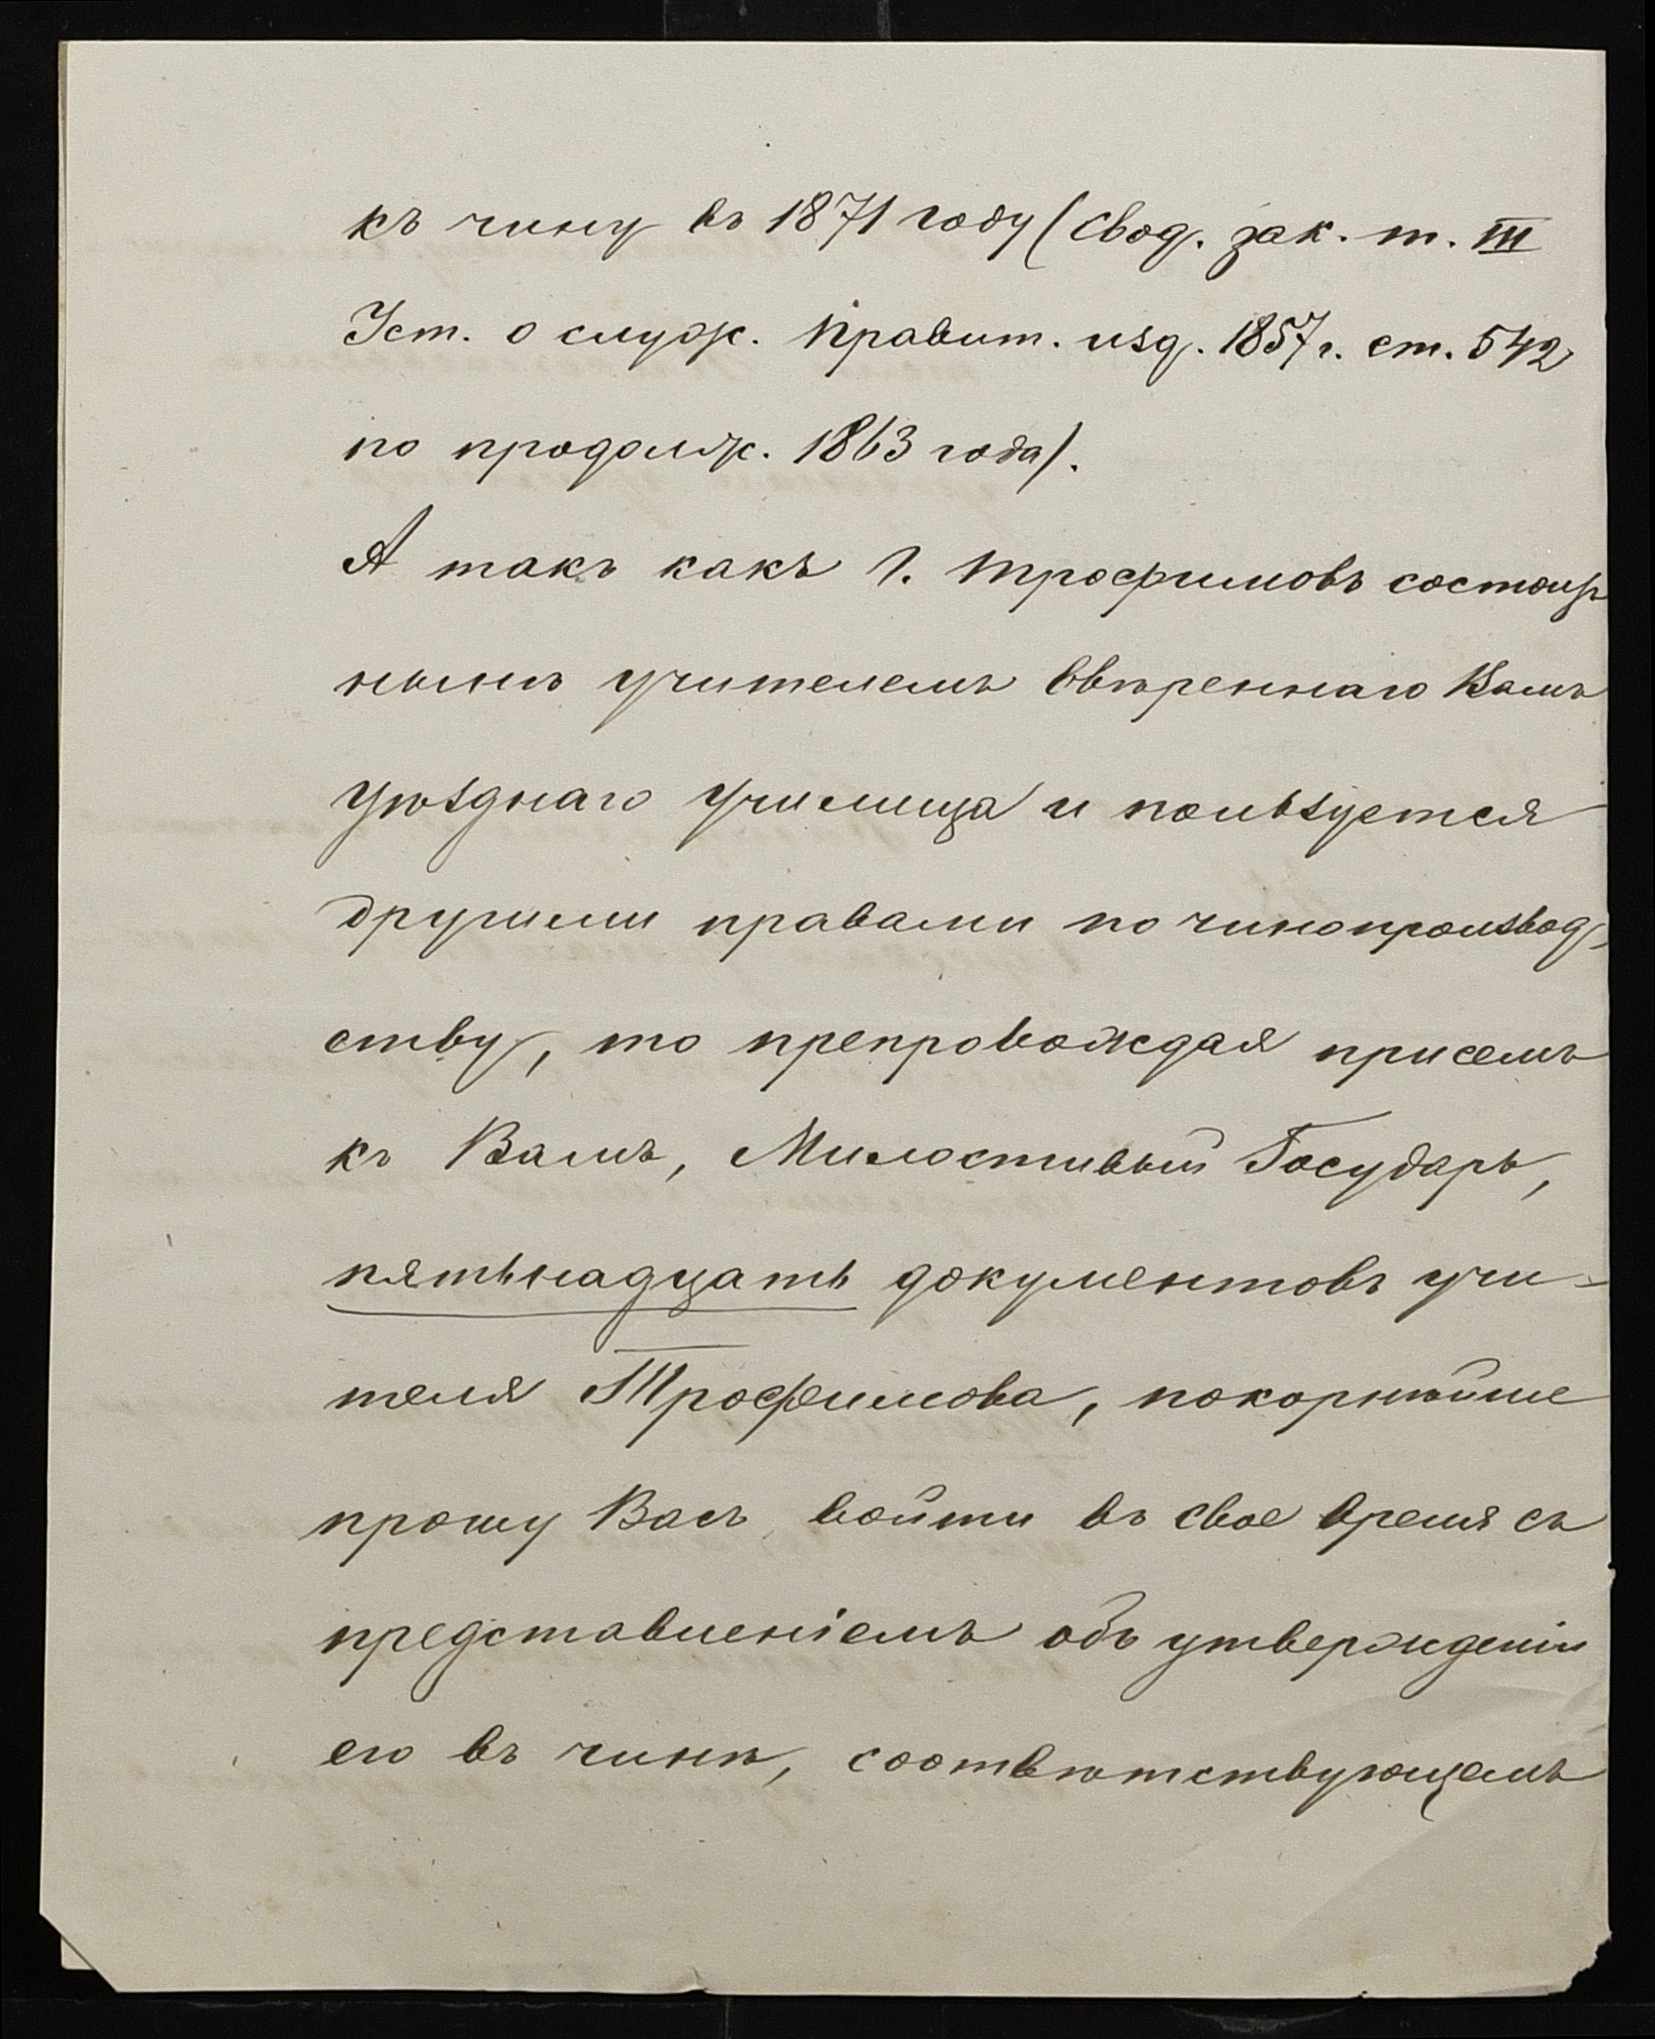 къ чину въ 1871 году (Свод. зак. т. III
Уст. о служ. правит. изд. 1857 г. ст. 542
по продолж. 1863 года).
А такъ какъ Г. Трофимовъ состоитъ
нынѣ учителемъ ввѣреннаго Вамъ
уѣзднаго училища и пользуется
другими правами по чинопроизвод-
ству, то препровождая присемъ
къ Вамъ, Милостивый Государь,
пятьнадцать документовъ учи-
теля Трофимова, покорнѣйше
прошу Васъ войти въ свое время съ
представленіемъ объ утвержденіи
его въ чинѣ, соотвѣтствующемъ